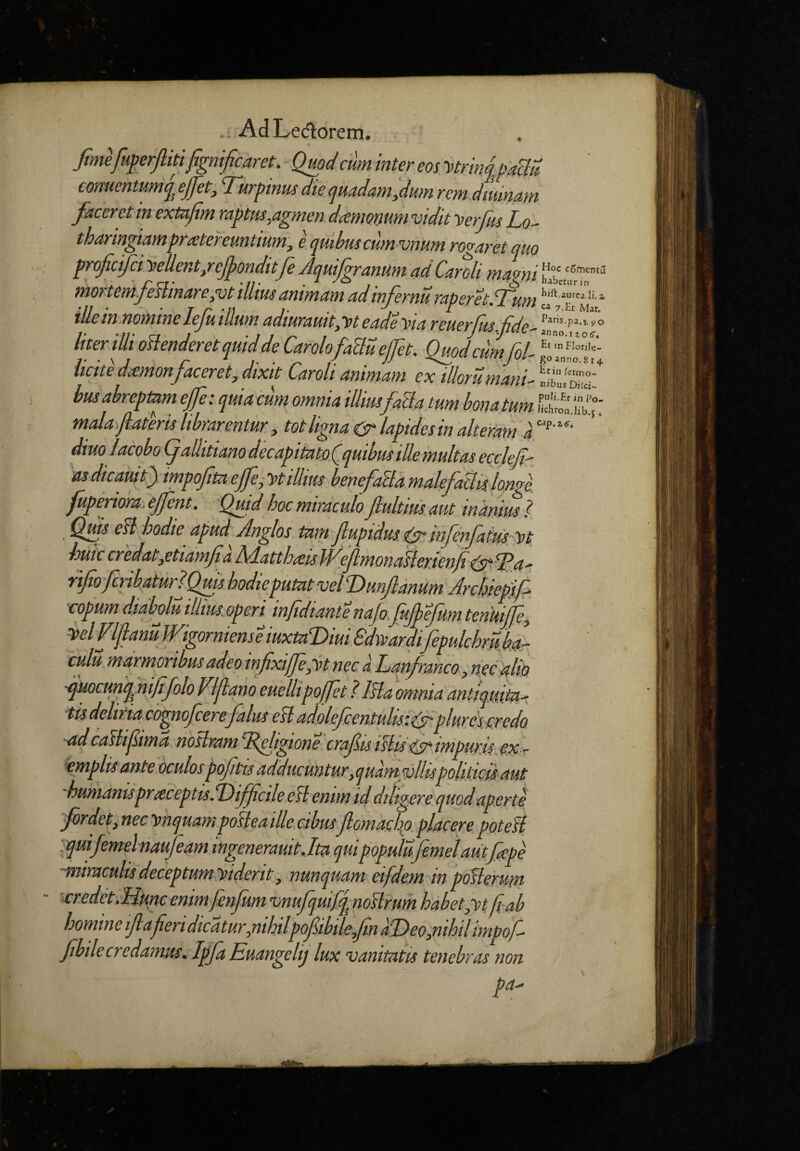 Ad Lectorem.
sime superstiti significaret. Quod cùm inter eos vtrinq; pactū
conuentumq; esset, Turpinus die quadam, dum rem diuinam
faceret in extasim raptus, agmen dæmonum vidit versus Lo-
tharingiam prætereuntium, è quibus cùm vnum rogaret quo
proficisci vellent, respondit se Aquisgranum ad Caroli magni
mortem festinare, vt illius animam ad infernū raperet. Tum
ille in nomine Iesu illum adiurauit, vt eadē via reuersus, fide-
liter illi ostenderet quid de Carolo factū esset. Quod cùm sol-
licitè dæmon faceret, dixit Caroli animam ex illorū mani-
bus abreptam esse: quia cùm omnia illius facta tum bona tum
mala stateris librarentur, tot ligna & lapides in alteram à
diuo Iacobo Gallitiano decapitato (quibus ille multas ecclesi-
as dicauit) imposita esse, vt illius benefacta malefactis longè
superiora essent. Quid hoc miraculo stultius aut inanius?
Quis est hodie apud Anglos tam stupidus & insensatus vt
huic credat, etiamsi à Matthæis Westmonasteriensi & Pa-
risio scribatur? Quis hodie putat vel Dunstanum Archiepis-
copum diabolū illius operi insidiantē naso suspēsum tenuisse,
vel Vlstanū Wigorniensē iuxta Diui Edwardi sepulchrū ba-
culū marmoribus adeo infixisse, vt nec à Lanfranco, nec alio
quocunq; nisi solo Vlstano euelli posset? Ista omnia antiquita-
tis deliria cognoscere salus est adolescentulis: & plures credo
ad castissimā nostram Religionē crassis istis & impuris ex-
emplis ante oculos positis adducuntur, quàm vllis politicis aut
humanis præceptis. Difficile est enim id diligere quod apertè
sordet, nec vnquam postea ille cibus stomacho placere potest
qui semel nauseam ingenerauit. Ita qui populū semel aut sæpè
miraculis deceptum viderit, nunquam eisdem in posterum
credet. Hunc enim sensum vnusquisq; nostrum habet, vt si ab
homine ista fieri dicātur, nihil possibile, sin à Deo, nihil impos-
sibile credamus. Ipsa Euangelij lux vanitatis tenebras non
pa-
Hoc cōmentū
habetur in
hist. aurea li. 2
ca 7. Et Mat.
Paris. pa.
anno. 1106.
Et in Florile-
go anno. 814
Et in sermo-
nibus Disci-
puli. Et in Po-
lichron. lib. 5.
cap. 26.